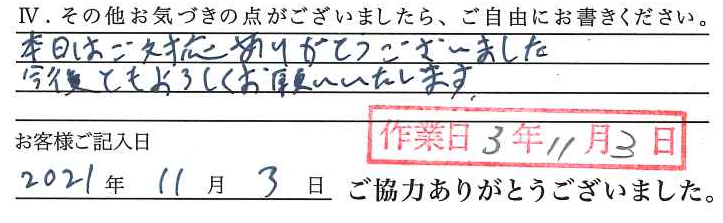 Ⅳ．その他お気づきの点がございましたら、ご自由にお書きください。
本日はご対応ありがとうございました
今後ともよろしくお願いいたします。
お客様ご記入日
作業日 3年11月3日
2021年 11月 3日
ご協力ありがとうございました。